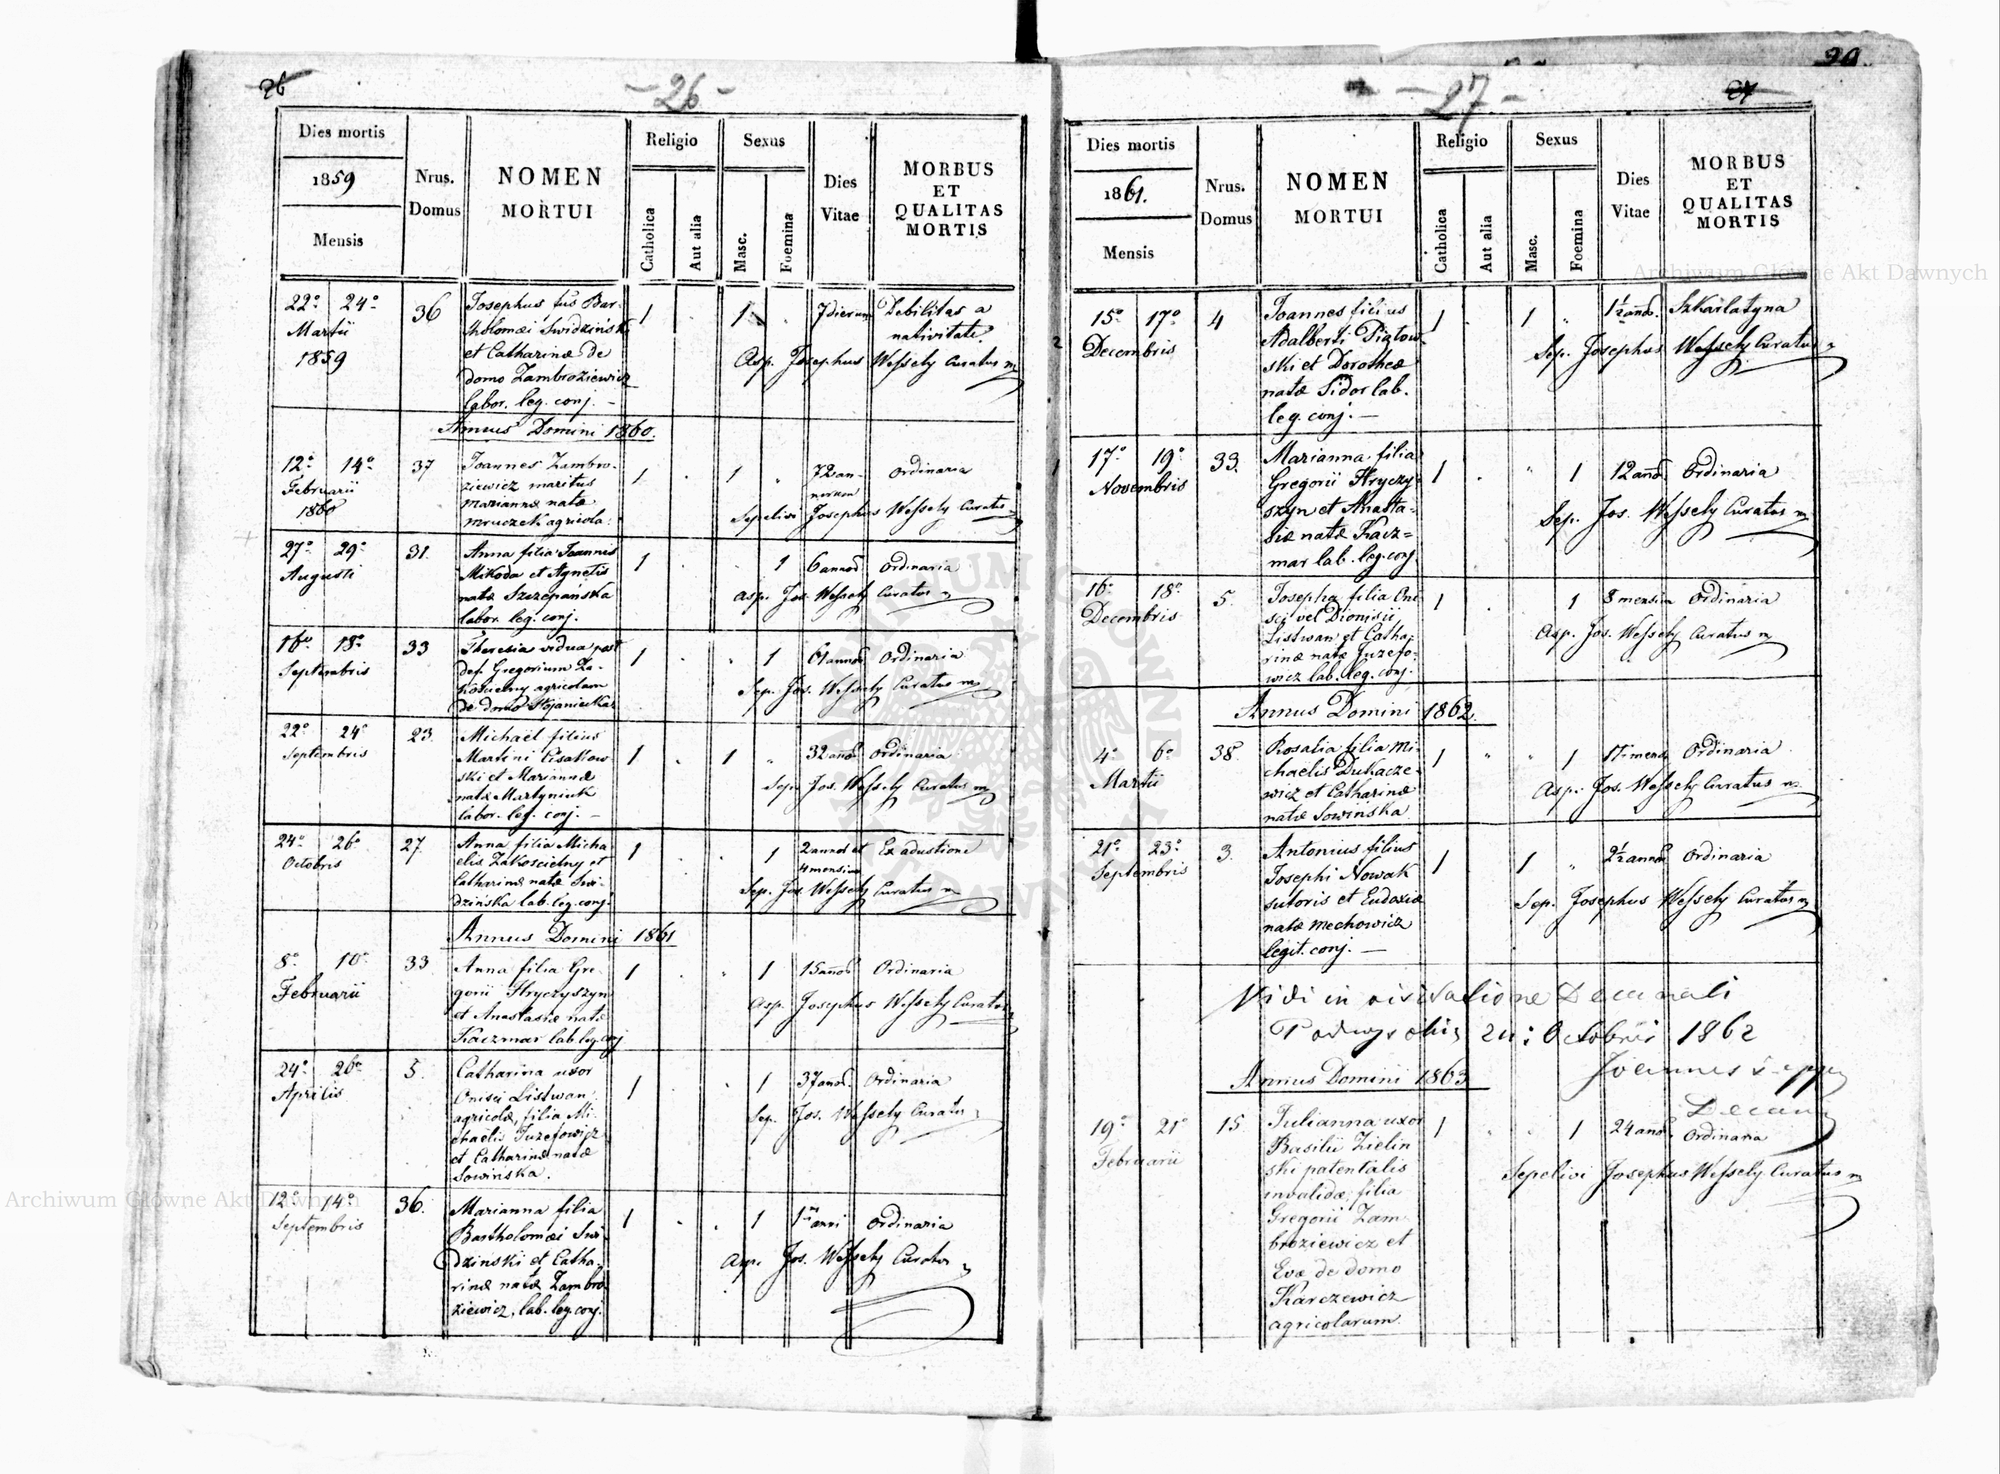 26
- 26 -
Dies mortis
1859
Mensis
Nrus.
Domus
NOMEN
MORTUI
Religio
Catholica
Aut alia
Sexus
Masc.
Foemina
Dies
Vitae
MORBUS
ET
QUALITAS
MORTIS
22ᵃ 24ᵃ
Martii
1859
36
Josephus fus Bar-
tholomæi Swidziński
et Catharinæ de
domo Zambroziewicz
labor. leg. conj. –
1 1
7 dierum
Debilitas a
nativitate.
Asp. Josephus Wessely Curatus
Annus Domini 1860.
12ᵃ 14ᵃ
Februarii
1860
37
Joannes Zambro-
ziewicz maritus
Mariannæ natæ
Mruczek agricola.
1 1
72 an-
norum
Ordinaria
Sepelivi Josephus Wessely Curatus
27ᵃ 29ᵃ
Augusti
31.
Anna filia Joannis
Mikoda et Agnetis
natæ Szczepanska
labor. leg. conj.
1 1
6 annor
Ordinaria
Asp. Jos. Wessely Curatus
16ᵃ 18ᵃ
Septembris
33
Theresia vidua post
def. Gregorium Za-
koscielny agricolam
de domo Stojaniuka
1 1
61 annor
Ordinaria
Sep. Jos. Wessely Curatus
22ᵃ 24ᵃ
Septembris
23.
Michaël filius
Martini Cisakow
ski et Mariannæ
natæ Martyniuk
labor. leg. conj. –
1 1
32 annor
Ordinaria
Sep. Jos. Wessely Curatus
24ᵃ 26ᵃ
Octobris
27.
Anna filia Micha
elis Zakoscielny et
Catharinæ natæ Swi-
dzińska lab. leg. conj.
1 1
2 annor et
4 mensium
Ex adustione
Sep. Jos. Wessely Curatus
Annus Domini 1861
8ᵃ 10ᵃ
Februarii
33
Anna filia Gre-
gorii Hryczyszyn
et Anastasiæ natæ
Kaczmar lab. leg. conj
1 1
15 annor
Ordinaria
Asp. Josephus Wessely Curatus
24ᵃ 26ᵃ
Aprilis
5.
Catharina uxor
Onisei Listwan
agricolæ, filia Mi-
chaelis Juzefowicz
et Catharinæ natæ
Sowińska.
1 1
37 annor.
Ordinaria
Sep. Jos. Wessely Curatus
12ᵃ 14ᵃ
Septembris
36.
Marianna filia
Bartholomæi Swi
dzinski et Catha-
rinæ natæ Zambro
ziewicz, lab. leg. conj.
1 1
1 anni
Ordinaria
Asp. Jos. Wessely Curatus
- 27 -
27
29
Dies mortis
1861.
Mensis
Nrus.
Domus
NOMEN
MORTUI
Religio
Catholica
Aut alia
Sexus
Masc.
Foemina
Dies
Vitae
MORBUS
ET
QUALITAS
MORTIS
15ᵃ 17ᵃ
Decembris
4
Joannes filius
Adalberti Piątow-
ski et Dorotheæ
natæ Sidor lab.
leg. conj. –
1 1
1½ annor.
Szkarlatyna
Sep. Josephus Wessely Curatus
17ᵃ 19ᵃ
Novembris
33.
Marianna filia
Gregorii Hryczy-
szyn et Anasta-
siæ natæ Kacz=
mar lab. leg. conj
1 1
12 annor
Ordinaria
Sep. Jos. Wessely Curatus
16ᵃ 18ᵃ
Decembris
5.
Josepha filia Oni
sei vel Dionisii
Listwan et Catha-
rinæ natæ Juzefo-
wicz lab. leg. conj.
1 1
8 mensium
Ordinaria
Asp. Jos. Wessely Curatus
Annus Domini 1862.
4ᵃ 6ᵃ
Martii
38.
Rosalia filia Mi-
chaelis Dukacze-
wicz et Catharinæ
natæ Sowińska
1 1
Ordinaria
Asp. Jos. Wessely Curatus
21ᵃ 23ᵃ
Septembris
3.
Antonius filius
Josephi Nowak
sutoris et Eudoxiæ
natæ Mechowicz
legit. conj. –
1 1
2½ annor
Ordinaria
Sep. Josephus Wessely Curatus
Vidi in visitatione Decanali
Octobris 1862
Joannes
Decanus
Annus Domini 1863
19ᵃ 21ᵃ
Februarii
15
Julianna uxor
Basilii Zielin
ski patentalis
invalidæ, filia
Gregorii Zam
broziewicz et
Evæ de domo
Karczewicz
agricolarum.
1 1
24 annor.
Ordinaria
Sepelivi Josephus Wessely Curatus
Archiwum Główne Akt Dawnych
Archiwum Główne Akt Dawnych
ARCHIWUM GŁÓWNE AKT DAWNYCH